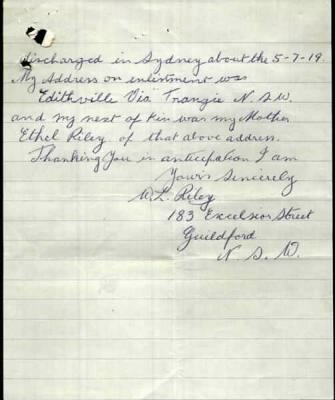 discharged in Sydney about the 5-7-19.
My Address on enlistment was
Edithville Via Trangie N.S.W.
and my next of kin was my Mother
Ethel Riley of that above address.
Thanking You in anticipation I am
Yours Sincerely
W.L. Riley
183 Excelsior Street
Guildford
N.S.W.